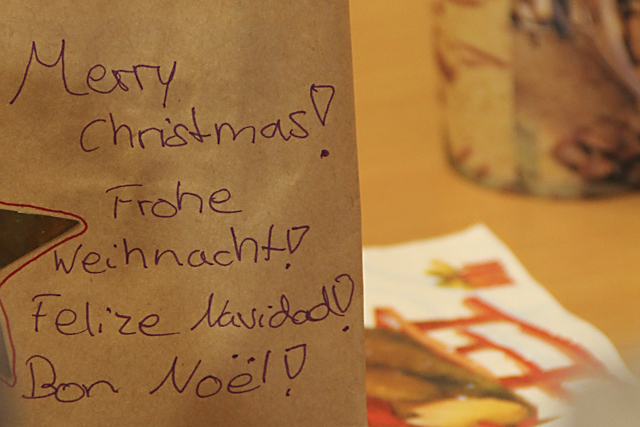 Merry
Christmas!
Frohe
Weihnacht!
Felize Navidad!
Bon Noël!